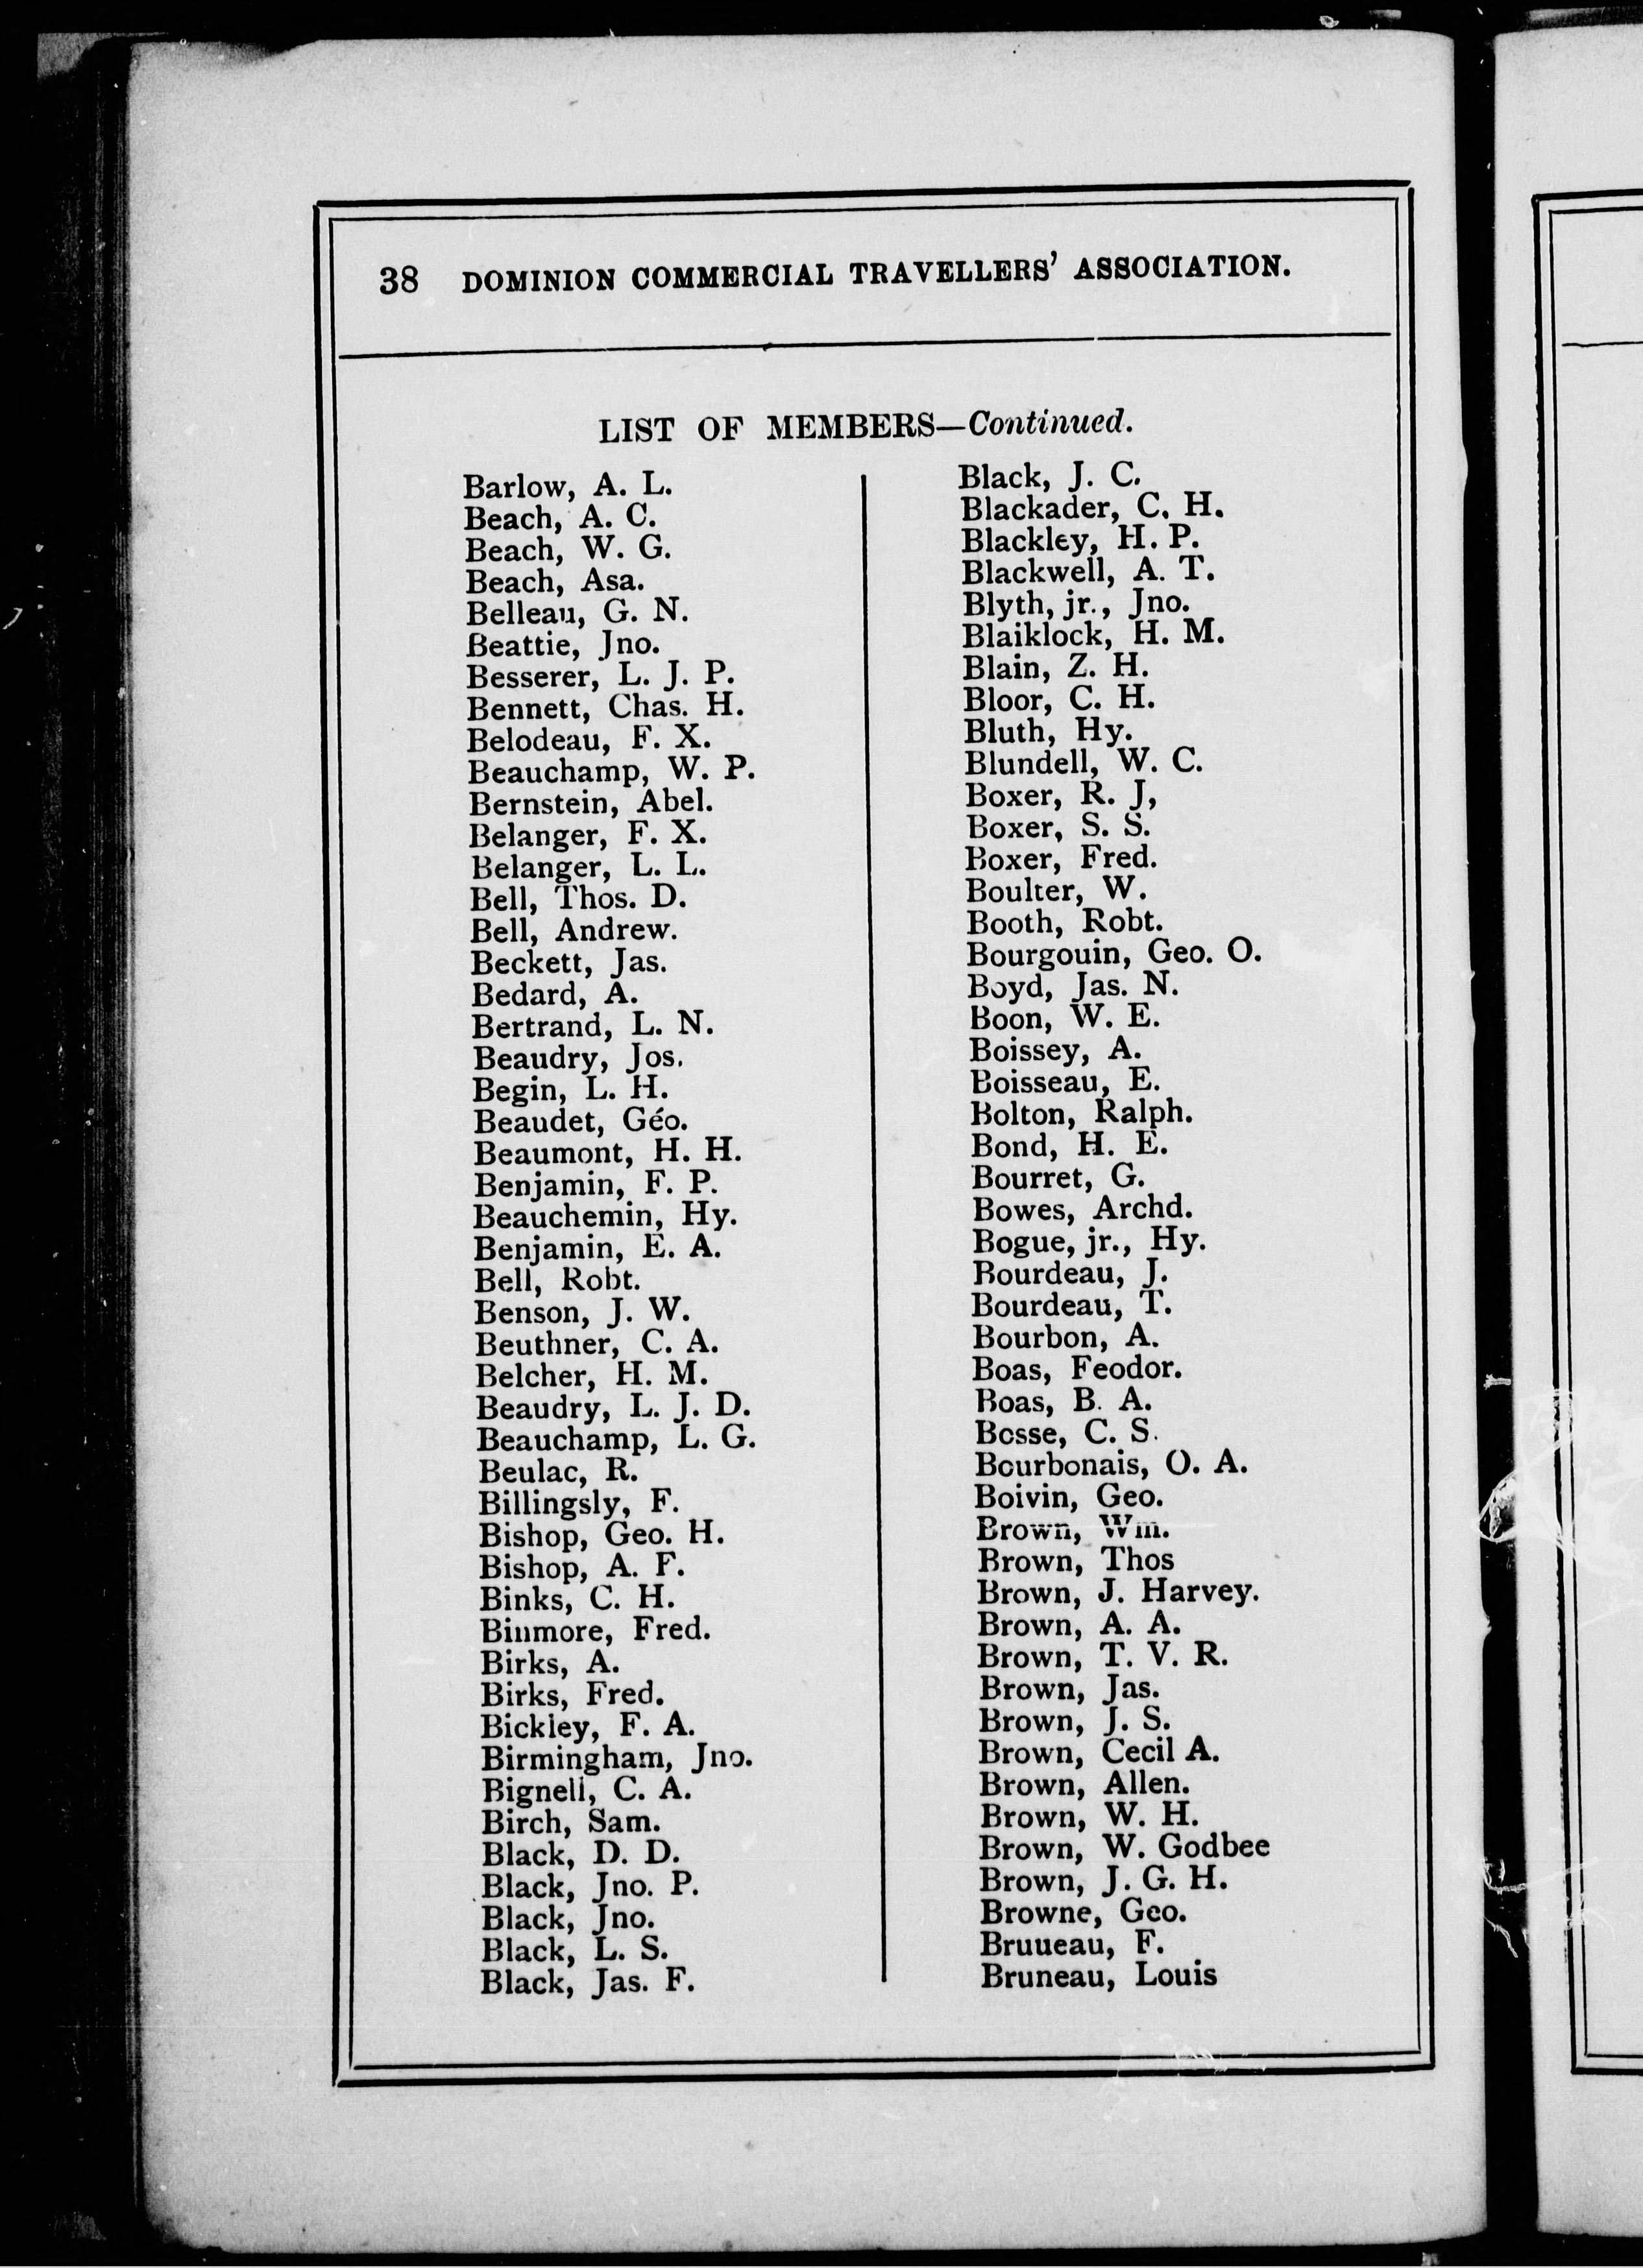 38 DOMINION COMMERCIAL TRAVELLERS' ASSOCIATION.
LIST OF MEMBERS—Continued.
Barlow, A. L.
Beach, A. C.
Beach, W. G.
Beach, Asa.
Belleau, G. N.
Beattie, Jno.
Besserer, L. J. P.
Bennett, Chas. H.
Belodeau, F. X.
Beauchamp, W. P.
Bernstein, Abel.
Belanger, F. X.
Belanger, L. L.
Bell, Thos. D.
Bell, Andrew.
Beckett, Jas.
Bedard, A.
Bertrand, L. N.
Beaudry, Jos.
Begin, L. H.
Beaudet, Géo.
Beaumont, H. H.
Benjamin, F. P.
Beauchemin, Hy.
Benjamin, E. A.
Bell, Robt.
Benson, J. W.
Beuthner, C. A.
Belcher, H. M.
Beaudry, L. J. D.
Beauchamp, L. G.
Beulac, R.
Billingsly, F.
Bishop, Geo. H.
Bishop, A. F.
Binks, C. H.
Binmore, Fred.
Birks, A.
Birks, Fred.
Bickley, F. A.
Birmingham, Jno.
Bignell, C. A.
Birch, Sam.
Black, D. D.
Black, Jno. P.
Black, Jno.
Black, L. S.
Black, Jas. F.
Black, J. C.
Blackader, C. H.
Blackley, H. P.
Blackwell, A. T.
Blyth, jr., Jno.
Blaiklock, H. M.
Blain, Z. H.
Bloor, C. H.
Bluth, Hy.
Blundell, W. C.
Boxer, R. J,
Boxer, S. S.
Boxer, Fred.
Boulter, W.
Booth, Robt.
Bourgouin, Geo. O.
Boyd, Jas. N.
Boon, W. E.
Boissey, A.
Boisseau, E.
Bolton, Ralph.
Bond, H. E.
Bourret, G.
Bowes, Archd.
Bogue, jr., Hy.
Bourdeau, J.
Bourdeau, T.
Bourbon, A.
Boas, Feodor.
Boas, B. A.
Bosse, C. S.
Bourbonais, O. A.
Boivin, Geo.
Brown, Wm.
Brown, Thos
Brown, J. Harvey.
Brown, A. A.
Brown, T. V. R.
Brown, Jas.
Brown, J. S.
Brown, Cecil A.
Brown, Allen.
Brown, W. H.
Brown, W. Godbee
Brown, J. G. H.
Browne, Geo.
Bruueau, F.
Bruneau, Louis